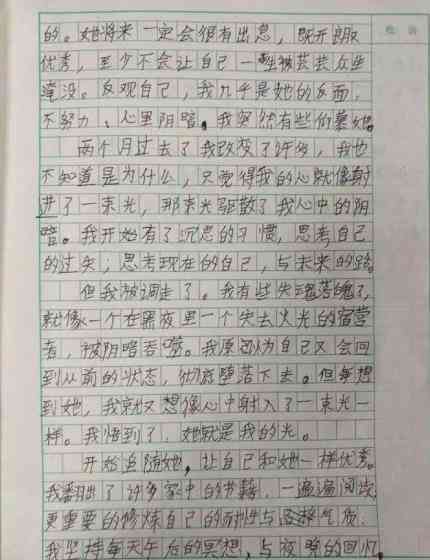 的。她将来一定会很有出息，既开朗又
优秀，至少不会让自己一生被芸芸众生
淹没。反观自己，我几乎是她的反面，
不努力、心里阴暗。我突然有些仰慕她。
两个月过去了我改变了许多，我也
不知道是为什么，只觉得我的心就像射
进了一束光，那束光驱散了我心中的阴
暗。我开始有了沉思的习惯，思考自己
的过失；思考现在的自己，与未来的路。
但我被调走了。我有些失魂落魄了，
就像一个在黑夜里一个失去火光的宿营
者，被阴暗吞噬。我原以为自己又会回
到从前的状态，彻底堕落下去。但每想
到她，我就又想像心中射入了一束光一
样。我悟到了，她就是我的光。
开始追随她，让自己和她一样优秀。
我翻出了许多家中的书籍，一遍遍阅读，
更重要的修炼自己的耐性与品格气质，
我坚持每天午后的冥想，与夜晚的回忆，